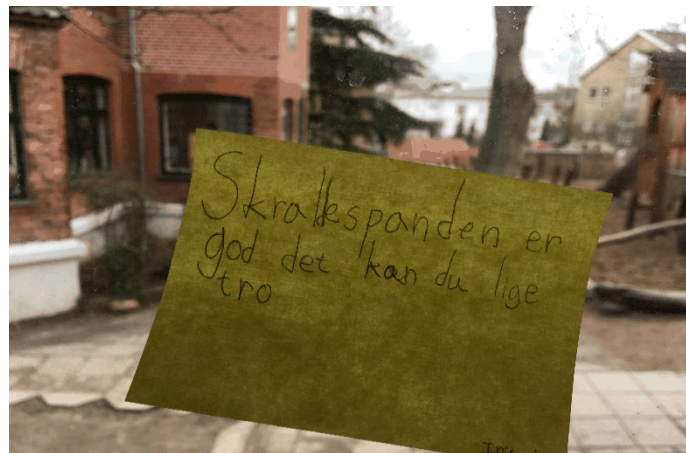 Skrallespanden er
god det kan du lige
tro